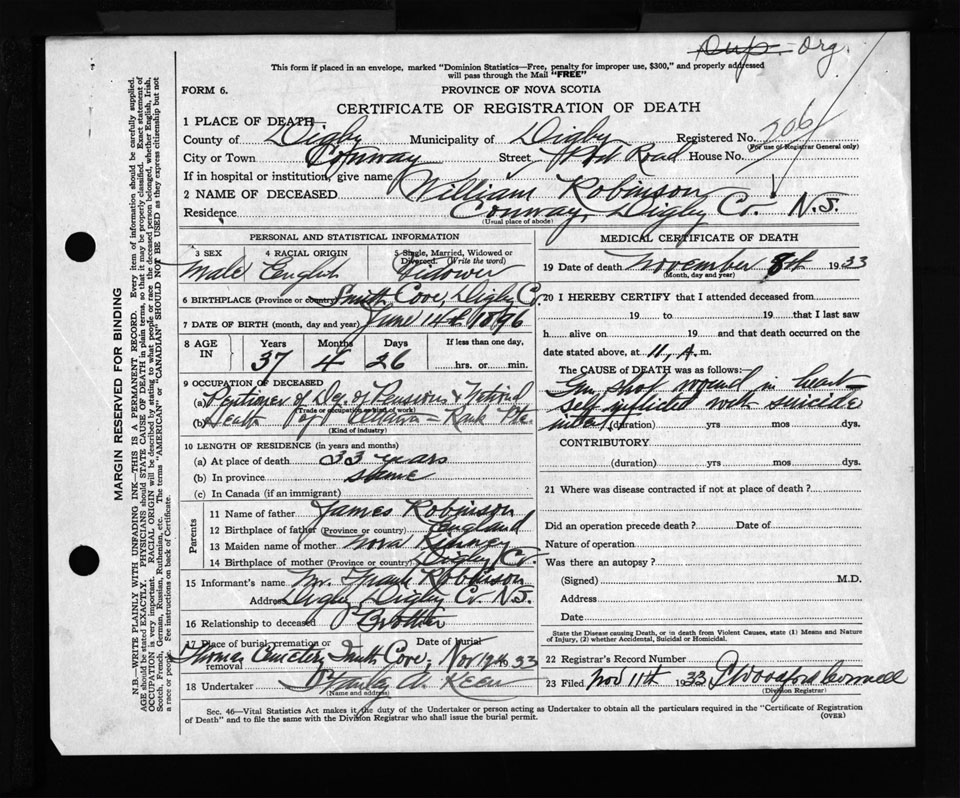 Dup. Org.
This form if placed in an envelope, marked "Dominion Statistics—Free, penalty for improper use, $300," and properly addressed
will pass through the Mail "FREE"
FORM 6. PROVINCE OF NOVA SCOTIA
CERTIFICATE OF REGISTRATION OF DEATH
1 PLACE OF DEATH—
County of Digby Municipality of Digby Registered No. 206
(For use of Registrar General only)
City or Town Conway Street Road House No.
If in hospital or institution, give name
2 NAME OF DECEASED William Robinson
Residence Conway, Digby Co. N.S.
(Usual place of abode)
PERSONAL AND STATISTICAL INFORMATION
3 SEX 4 RACIAL ORIGIN 5 Single, Married, Widowed or
Divorced. (Write the word)
Male English Widower
6 BIRTHPLACE (Province or country) Smith Cove, Digby Co.
7 DATE OF BIRTH (month, day and year) June 14th 1896
8 AGE IN Years Months Days If less than one day,
37 4 26 hrs. or min.
9 OCCUPATION OF DECEASED
(a) of Pensions &
(Trade or occupation or kind of work)
(b) Health of Ottawa – Rank Pte.
(Kind of industry)
10 LENGTH OF RESIDENCE (in years and months)
(a) At place of death 33 years
(b) In province same
(c) In Canada (if an immigrant)
Parents
11 Name of father James Robinson
12 Birthplace of father (Province or country) England
13 Maiden name of mother Nova Kinney
14 Birthplace of mother (Province or country) Digby Co.
15 Informant's name Mr. Frank Robinson
Address Digby Digby Co N.S.
16 Relationship to deceased Brother
17 Place of burial, cremation or removal Date of burial
Thomas Cemetery Smith Cove, Nov 12th 33
18 Undertaker Stanley A. Keen
(Name and address)
MEDICAL CERTIFICATE OF DEATH
19 Date of death November 8th 1933
(Month, day and year)
20 I HEREBY CERTIFY that I attended deceased from
19 to 19 that I last saw
h alive on 19 and that death occurred on the
date stated above, at 11, A.m.
The CAUSE OF DEATH was as follows:
Gun shot wound in heart
Self inflicted with suicide
intent (duration) yrs mos dys.
CONTRIBUTORY
(duration) yrs mos dys.
21 Where was disease contracted if not at place of death?
Did an operation precede death? Date of
Nature of operation
Was there an autopsy?
(Signed) M.D.
Address
Date
State the Disease causing Death, or in death from Violent Causes, state (1) Means and Nature
of Injury, (2) whether Accidental, Suicidal or Homicidal.
22 Registrar's Record Number
23 Filed Nov 11th 1933
(Division Registrar)
Sec. 46—Vital Statistics Act makes it the duty of the Undertaker or person acting as Undertaker to obtain all the particulars required in the "Certificate of Registration
of Death" and to file the same with the Division Registrar who shall issue the burial permit. (OVER)
MARGIN RESERVED FOR BINDING
N.B.—WRITE PLAINLY WITH UNFADING INK—THIS IS A PERMANENT RECORD. Every item of information should be carefully supplied.
AGE should be stated EXACTLY. PHYSICIANS should STATE CAUSE OF DEATH in plain terms, so that it may be properly classified. Exact statement of
OCCUPATION is very important. RACIAL ORIGIN will be described by stating to what people or race the deceased person belonged, whether English, Irish,
Scotch, French, German, Russian, Ruthenian, etc. The terms "AMERICAN" or "CANADIAN" SHOULD NOT BE USED as they express citizenship but not
a race or people. See instructions on back of Certificate.